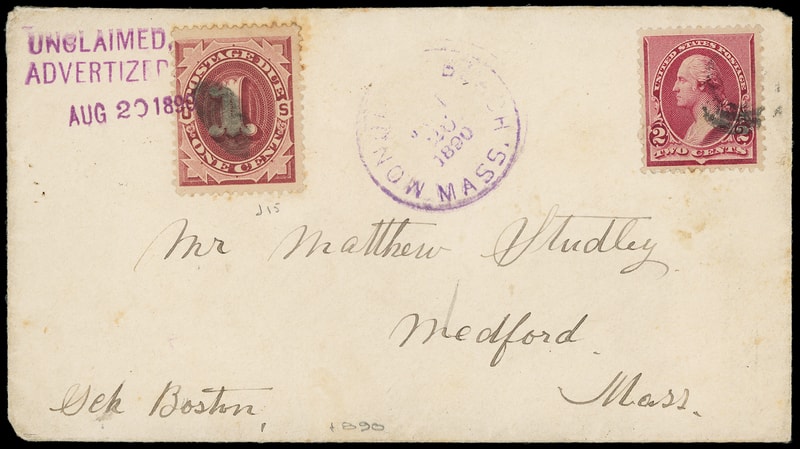 UNCLAIMED,
ADVERTIZED
AUG 20 1890
POSTAGE DUE
U 1 S
ONE CENT
J15
MONOW MASS.
1890
UNITED STATES POSTAGE
2 2
TWO CENTS
Mr Matthew Studley
Medford
Mass.
Boston,
1890